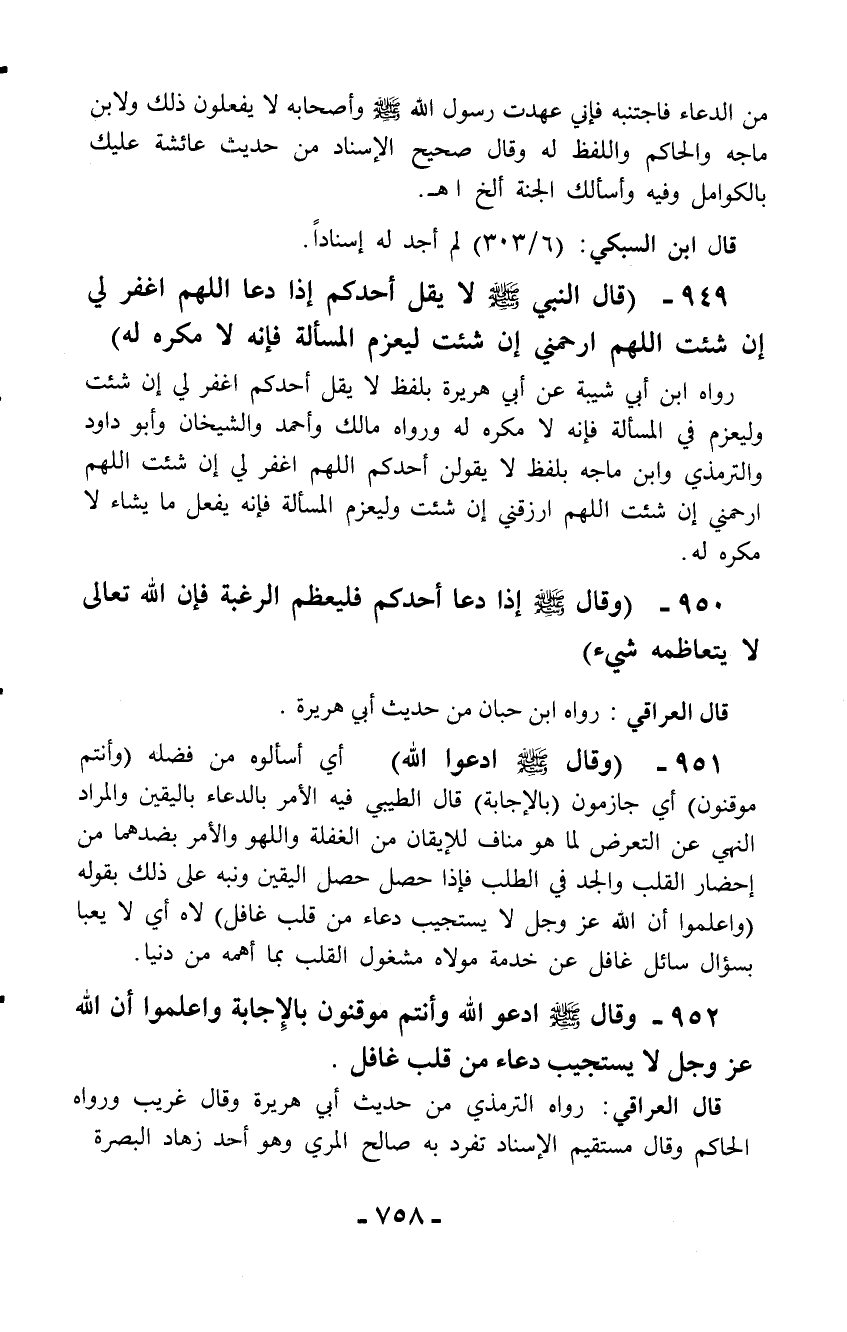 من الدعاء فاجتنبه فإني عهدت رسول الله ﷺ وأصحابه لا يفعلون ذلك ولابن
ماجه والحاكم واللفظ له وقال صحيح الإسناد من حديث عائشة عليك
بالكوامل وفيه وأسألك الجنة ألخ ا هـ.
قال ابن السبكي: (٣٠٣/٦) لم أجد له إسناداً.
٩٤٩ ـ (قال النبي ﷺ لا يقل أحدكم إذا دعا اللهم اغفر لي
إن شئت اللهم ارحمني إن شئت ليعزم المسألة فإنه لا مكره له)
رواه ابن أبي شيبة عن أبي هريرة بلفظ لا يقل أحدكم اغفر لي إن شئت
وليعزم في المسألة فإنه لا مكره له ورواه مالك وأحمد والشيخان وأبو داود
والترمذي وابن ماجه بلفظ لا يقولن أحدكم اللهم اغفر لي إن شئت اللهم
ارحمني إن شئت اللهم ارزقني إن شئت وليعزم المسألة فإنه يفعل ما يشاء لا
مكره له.
٩٥٠ ـ (وقال ﷺ إذا دعا أحدكم فليعظم الرغبة فإن الله تعالى
لا يتعاظمه شيء)
قال العراقي : رواه ابن حبان من حديث أبي هريرة .
٩٥١ ـ (وقال ﷺ ادعوا الله) أي أسألوه من فضله (وأنتم
موقنون) أي جازمون (بالإجابة) قال الطيبي فيه الأمر بالدعاء باليقين والمراد
النهي عن التعرض لما هو مناف للإيقان من الغفلة واللهو والأمر بضدهما من
إحضار القلب والجد في الطلب فإذا حصل حصل اليقين ونبه على ذلك بقوله
(واعلموا أن الله عز وجل لا يستجيب دعاء من قلب غافل) لاه أي لا يعبا
بسؤال سائل غافل عن خدمة مولاه مشغول القلب بما أهمه من دنيا.
٩٥٢ ـ وقال ﷺ ادعو الله وأنتم موقنون بالإجابة واعلموا أن الله
عز وجل لا يستجيب دعاء من قلب غافل .
قال العراقي: رواه الترمذي من حديث أبي هريرة وقال غريب ورواه
الحاكم وقال مستقيم الإسناد تفرد به صالح المري وهو أحد زهاد البصرة
ـ ٧٥٨ ـ